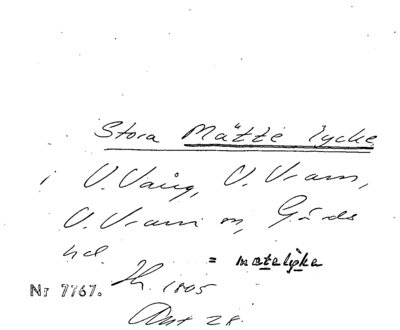 Stora Mätte lycke
i V. Vång, V. Vram,
V. Vram sn, Gärds
hd. = matelyka
Nr 7767. Th. 1805
Akt 28.